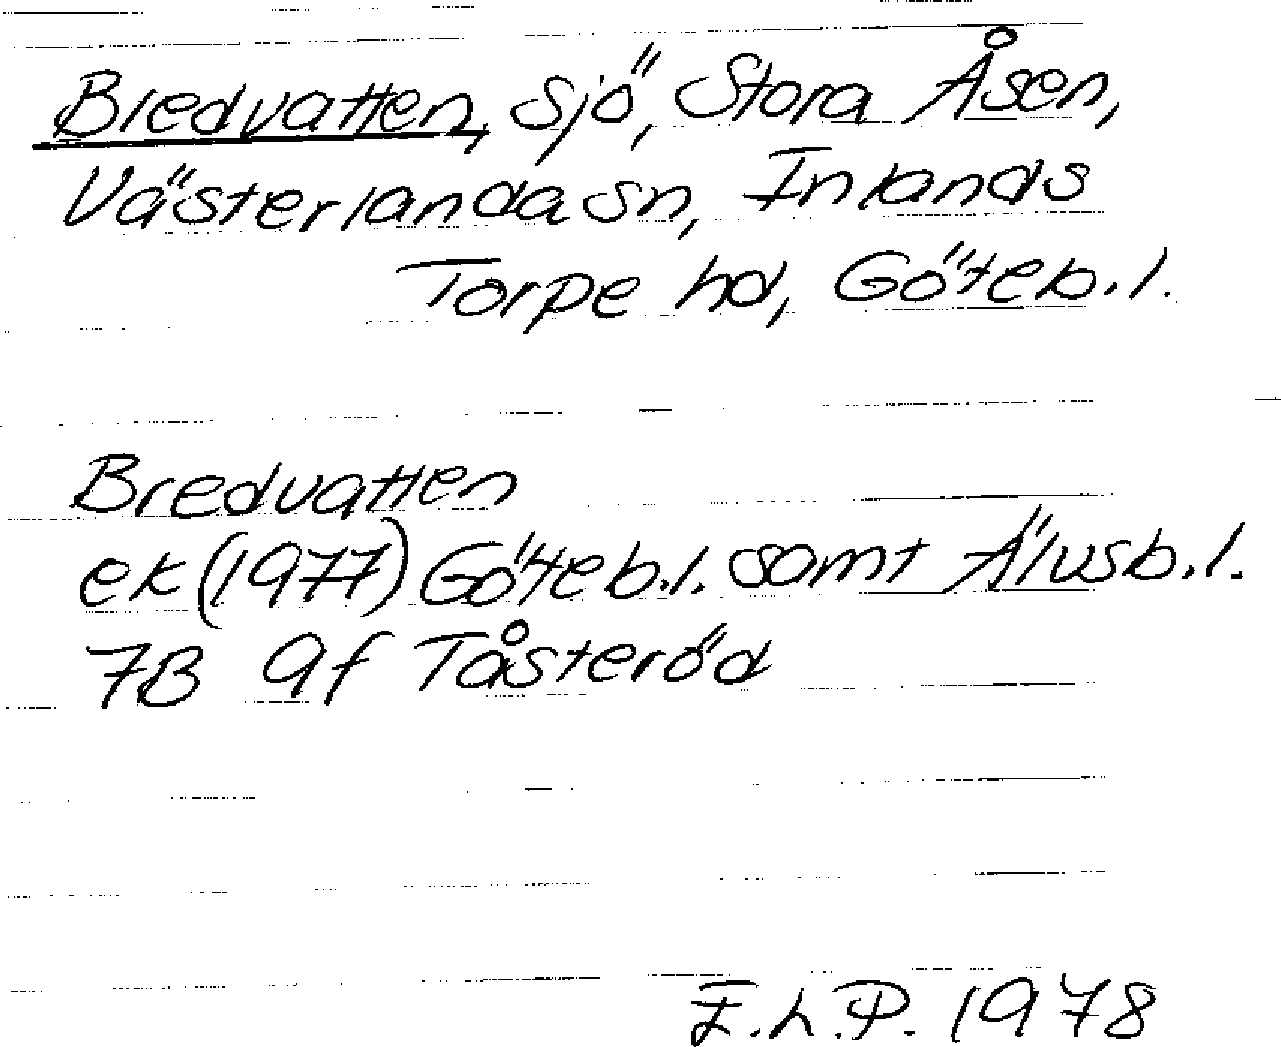 Bredvatten, sjö, Stora Åsen,
Västerlanda sn, Inlands
Torpe hd, Göteb.l.
Bredvatten
ek (1977) Göteb.l. samt Älvsb.l.
7B 9f Tåsteröd
E.L.P. 1978